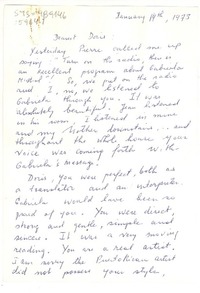 January 19th, 1973
Dearest Doris:
Yesterday Pierre called me up
saying: "Turn on the radio, there is
an excellent program about Gabriela
Mistral". So, we put on the radio
and I, we listened to
Gabriela through you. It was
absolutely beautiful. You listened
in his room, I listened in mine
and my mother downstairs... and
throughout the whole house your
voice was coming forth with
Gabriela's message.
Doris, you were perfect, both as
a translator and an interpreter.
Gabriela would have been so
proud of you. You were direct,
strong and gentle, simple and
sincere. It was a very moving
reading. You are a real artist.
I am sorry the Puertorican artist
did not possess your style,